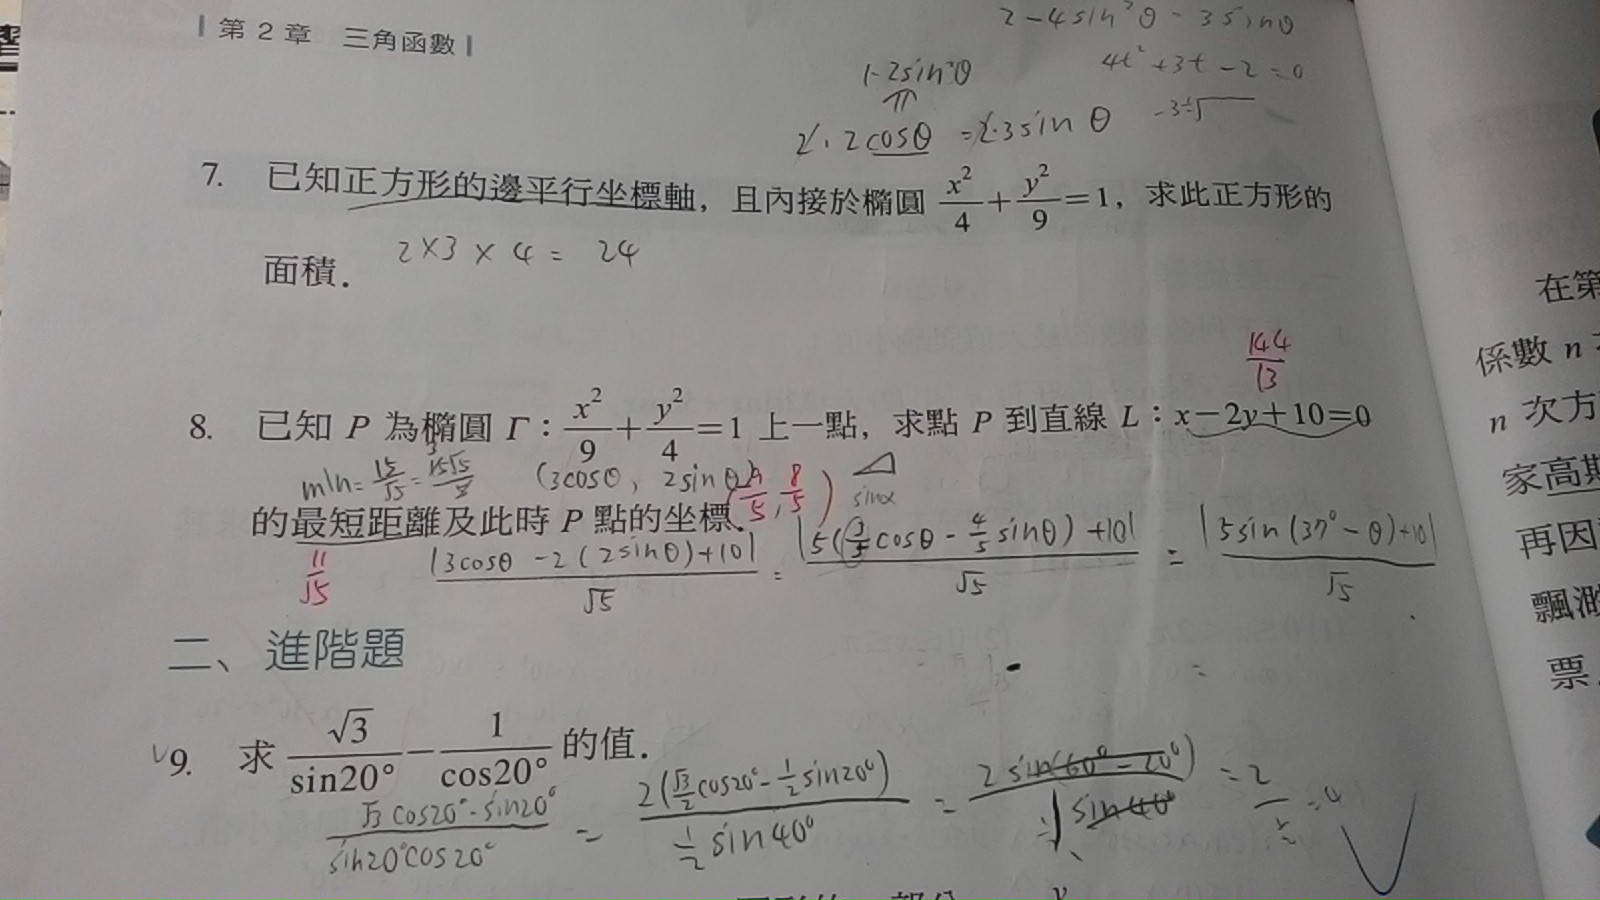 第 2 章 三角函數
2-4sin²θ = 3sinθ
1-2sin²θ
4t²+3t-2=0
2·2cosθ = 2·3sinθ
-3±√
7. 已知正方形的邊平行坐標軸，且內接於橢圓 x²/4 + y²/9 = 1，求此正方形的
面積．
2×3×4 = 24
144/13
8. 已知 P 為橢圓 Γ：x²/9 + y²/4 = 1 上一點，求點 P 到直線 L：x-2y+10=0
min = 15/√5 = 15√5/5
(3cosθ, 2sinθ)
8/5)
sinα
的最短距離及此時 P 點的坐標．
11/√5
|3cosθ-2(2sinθ)+10|/√5 = |5(3/5 cosθ - 4/5 sinθ)+10|/√5 = |5sin(37°-θ)+10|/√5
二、進階題
9. 求 √3/sin20° - 1/cos20° 的值．
(√3cos20°-sin20°)/(sin20°cos20°) = 2(√3/2 cos20° - 1/2 sin20°)/(1/2 sin40°) = 2sin(60°-20°)/(1/2 sin40°) = 2/(1/2) = 4
在第
係數 n
n 次方
家高斯
再因
飄
票